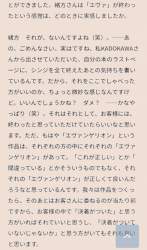 とができました。緒方さんは「エヴァ」が終わっ
たという感覚は、どのときに実感しましたか。
緒方　それが、ないんですよね（笑）。――あ
の、ごめんなさい。実はですね、私KADOKAWAさ
んから出させていただいた、自分の本のラストペ
ージに、シンジを全て終えたあとの気持ちを書い
ているんです。だから、それをここでしゃべった
方がいいのか、ちょっと微妙な感じなんですけ
ど。いいんでしょうかね？　ダメ？　――かなや
っぱり（笑）。それはそれとして、お客様には、
終わったと思っていただけていたらいいなと思い
ます。ただ、もはや「エヴァンゲリオン」という
作品は、それぞれの方の中にそれぞれの「エヴァ
ンゲリオン」があって、「これが正しい」とか「
間違っている」とかそういうものでもなく、それ
ぞれの「エヴァンゲリオン」が正しくて良いんだ
ろうなと思っているんです。我々は作品をつくっ
たら、そのあとはお客さんに委ねるのが当たり前
ですから、お客様の中で「決着がついた」と思う
方がいればそれでいいと思うし、「決着がついて
いないじゃないか」と思う方がいてもそれも良い
と思います。